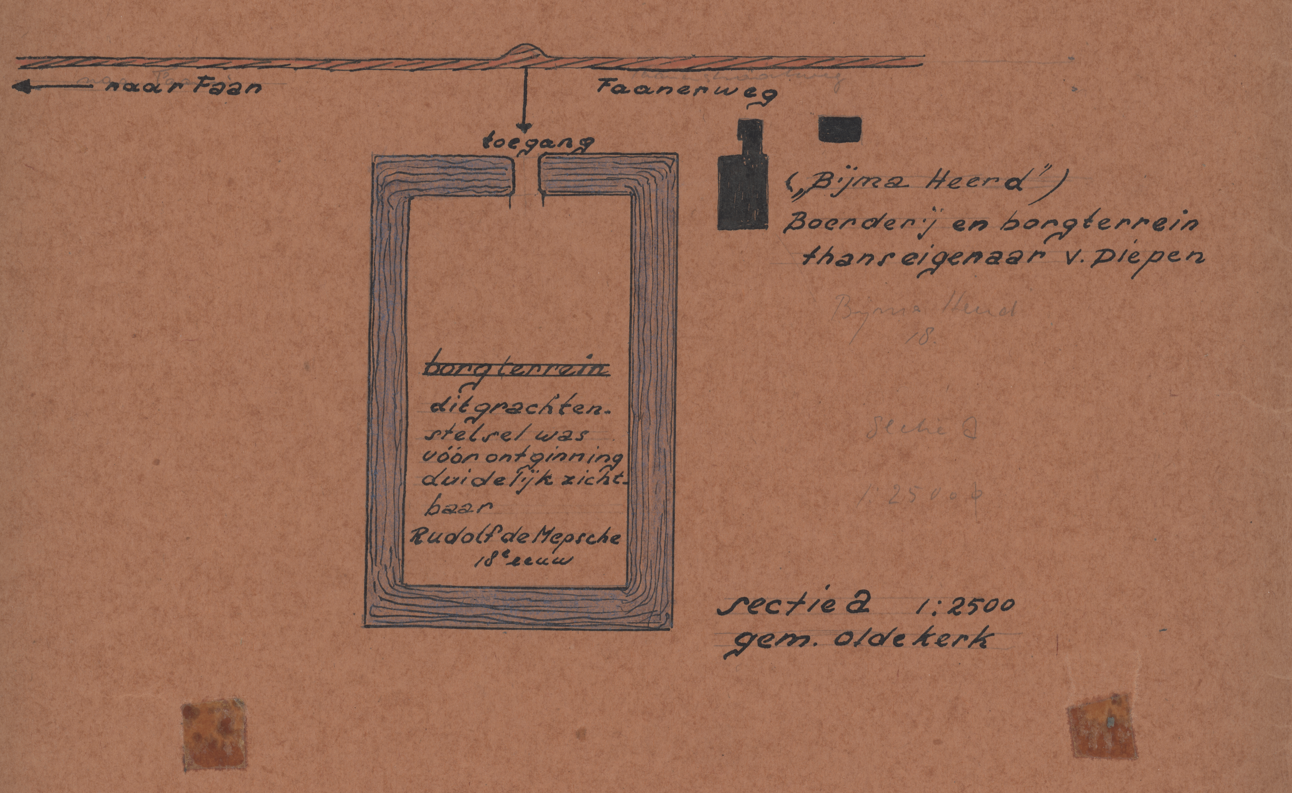 naar Faan
Faanerweg
toegang
(„Bijma Heerd”)
Boerderij en borgterrein
thans eigenaar v. Diepen
Bijma Heerd
18
borgterrein
dit grachten-
stelsel was
vóór ontginning
duidelijk zicht-
baar
Rudolf de Mepsche
18e eeuw
Sectie a
1:2500
sectie a 1:2500
gem. Oldekerk